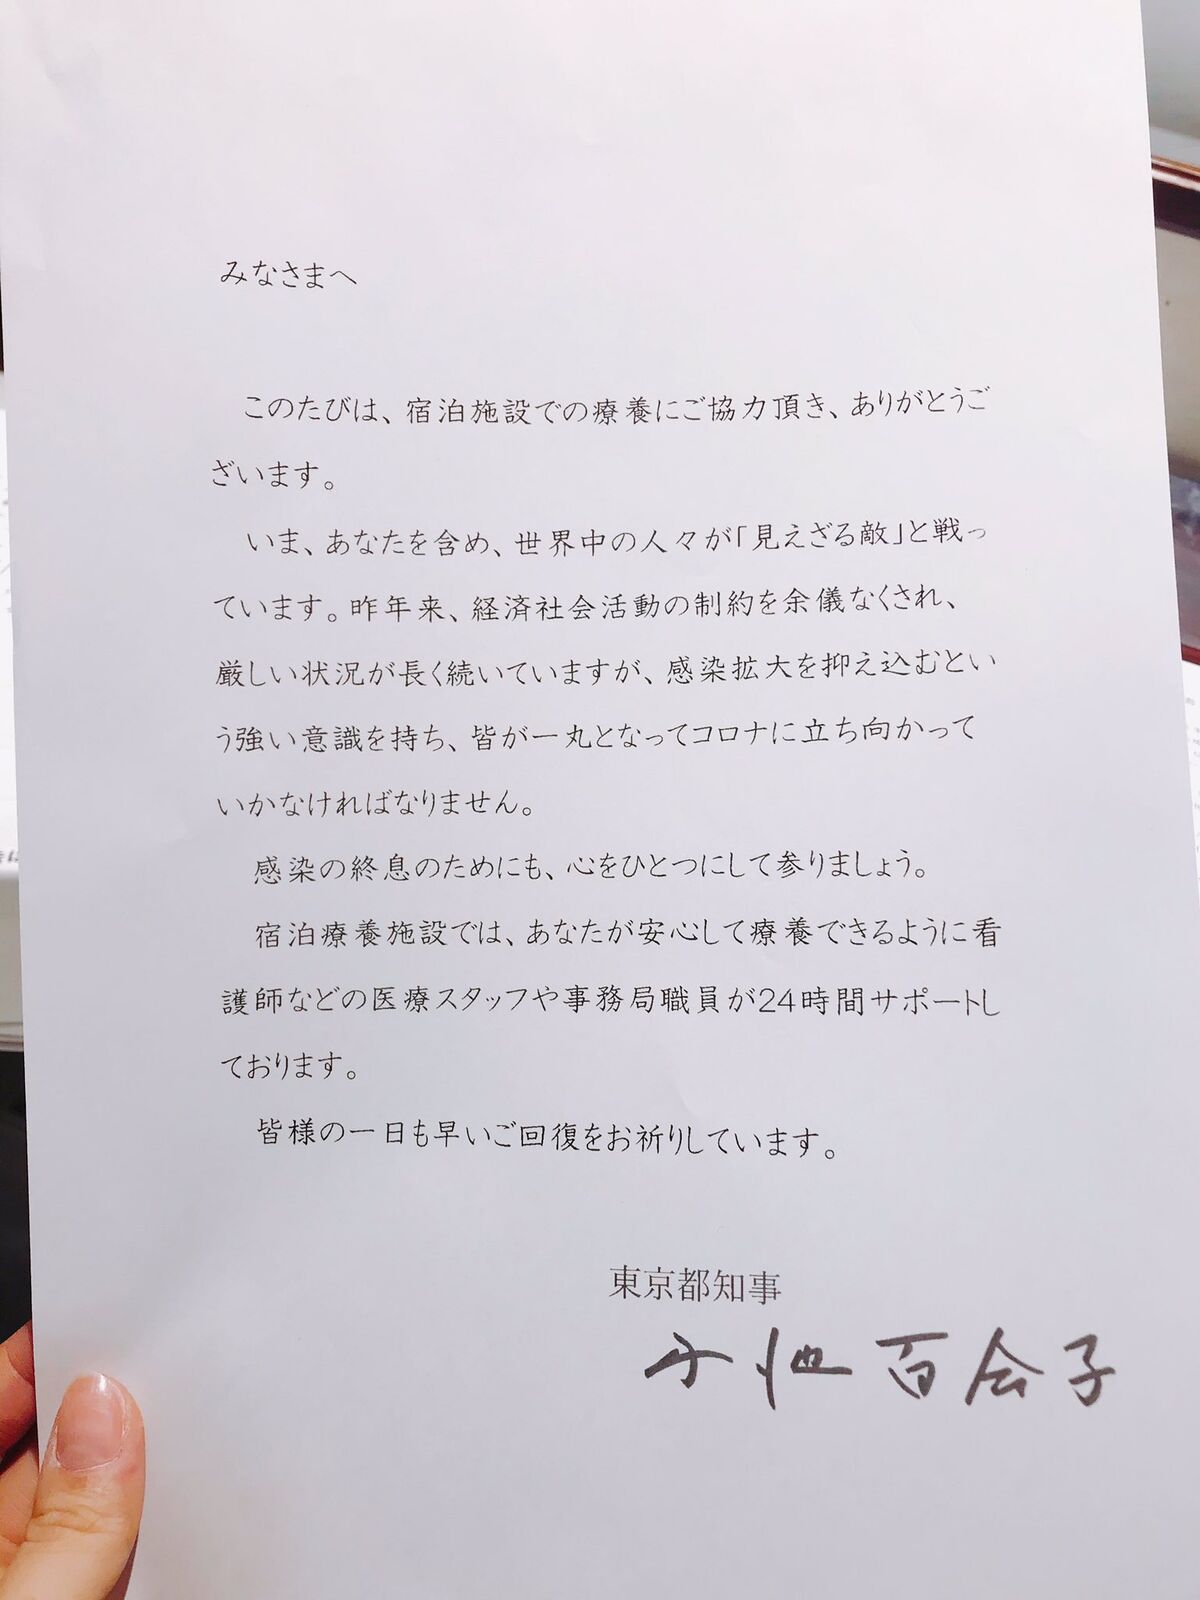 みなさまへ
このたびは、宿泊施設での療養にご協力頂き、ありがとうご
ざいます。
いま、あなたを含め、世界中の人々が「見えざる敵」と戦っ
ています。昨年来、経済社会活動の制約を余儀なくされ、
厳しい状況が長く続いていますが、感染拡大を抑え込むとい
う強い意識を持ち、皆が一丸となってコロナに立ち向かって
いかなければなりません。
感染の終息のためにも、心をひとつにして参りましょう。
宿泊療養施設では、あなたが安心して療養できるように看
護師などの医療スタッフや事務局職員が24時間サポートし
ております。
皆様の一日も早いご回復をお祈りしています。
東京都知事
小池百合子